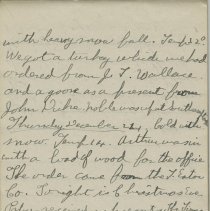 with heavy snow fall. Temp 20
We got a turkey which we had
ordered from J. T. Wallace
and a goose as a present from
John Dickie
Thursday December 24, Cold with
snow. Temp 14. Arthur was in
with a load of wood for the office
The order came from the T. Eaton
Co. Tonight is Christmas eve